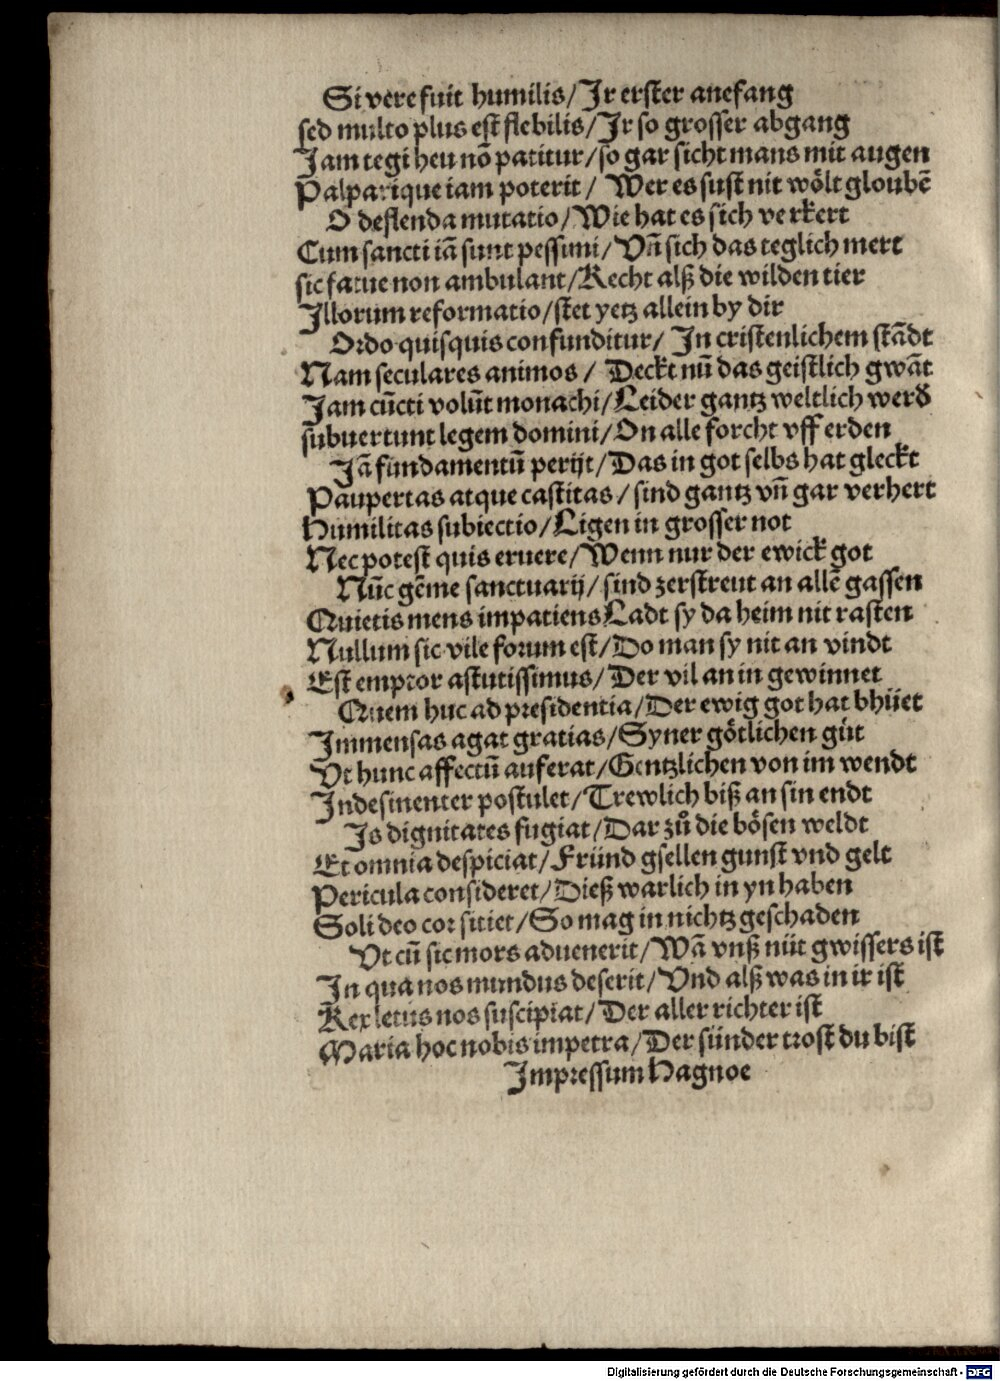 Si vere fuit humilis/Jr erster anefang
sed multo plus est flebilis/Jr so grosser abgang
Jam tegi heu nō patitur/so gar sicht mans mit augen
Palparique iam poterit/ Wer es sust nit wölt gloubē
O deflenda mutatio/Wie hat es sich verkert
Cum sancti iā sunt pessimi/Vñ sich das teglich mert
sic fatue non ambulant/Recht alß die wilden tier
Jllorum reformatio/stet yetz allein by dir
Ordo quisquis confunditur/ Jn cristenlichem stādt
Nam seculares animos/ Deckt nū das geistlich gwāt
Jam cūcti volūt monachi/Leider gantz weltlich werd
subuertunt legem domini/On alle forcht vff erden
Jā fundamentū perijt/Das in got selbs hat gleckt
Paupertas atque castitas/sind gantz vñ gar verhert
Humilitas subiectio/Ligen in grosser not
Nec potest quis eruere/Wenn nur der ewick got
Nūc gēme sanctuarij/sind zerstreut an allē gassen
Quietis mens impatiens Ladt sy da heim nit rasten
Nullum sic vile forum est/Do man sy nit an vindt
Est emptor astutissimus/Der vil an in gewinnet
Quem huc ad presidentia/Der ewig got hat bhüet
Jmmensas agat gratias/Syner götlichen güt
Vt hunc affectū auferat/Gentzlichen von im wendt
Jndesinenter postulet/Trewlich biß an sin endt
Js dignitates fugiat/Dar zů die bösen weldt
Et omnia despiciat/Fründ gsellen gunst vnd gelt
Pericula consideret/Dieß warlich in yn haben
Soli deo cor sitiet/So mag in nichtz geschaden
Vt cū sic mors aduenerit/Wā vnß nüt gwissers ist
Jn qua nos mundus deserit/Vnd alß was in ir ist
Rex letus nos suscipiat/Der aller richter ist
Maria hoc nobis impetra/Der sünder trost du bist
Jmpressum Hagnoe
Digitalisierung gefördert durch die Deutsche Forschungsgemeinschaft - DFG